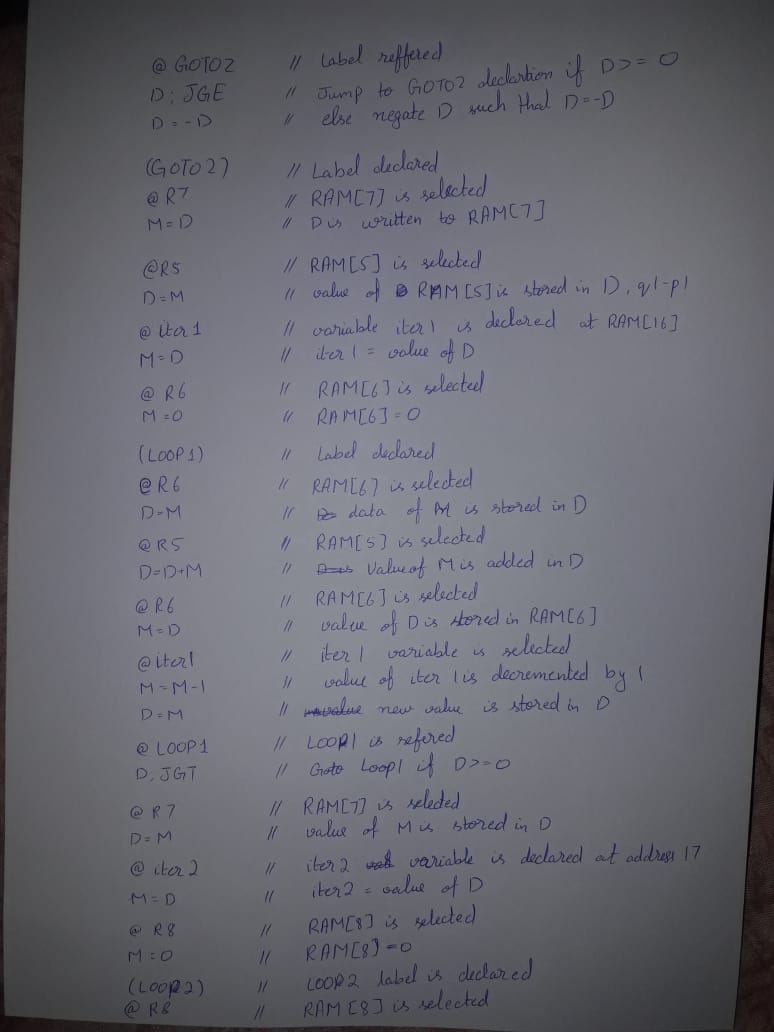 @ GOTO2 // Label reffered
D; JGE // Jump to GOTO2 declartion if D>= 0
D = -D // else negate D such that D=-D
(GOTO2) // Label declared
@ R7 // RAM[7] is selected
M=D // D is written to RAM[7]
@R5 // RAM[5] is selected
D=M // value of RAM[5] is stored in D, q1-p1
@ iter1 // variable iter1 is declared at RAM[16]
M=D // iter1 = value of D
@ R6 // RAM[6] is selected
M=0 // RAM[6]=0
(LOOP1) // Label declared
@ R6 // RAM[6] is selected
D=M // data of M is stored in D
@R5 // RAM[5] is selected
D=D+M // Value of M is added in D
@ R6 // RAM[6] is selected
M=D // value of D is stored in RAM[6]
@ iter1 // iter1 variable is selected
M=M-1 // value of iter1 is decremented by 1
D=M // new value is stored in D
@ LOOP1 // LOOP1 is refered
D; JGT // Goto Loop1 if D>=0
@ R7 // RAM[7] is seleted
D=M // value of M is stored in D
@ iter2 // iter2 variable is declared at address 17
M=D // iter2 = value of D
@ R8 // RAM[8] is selected
M=0 // RAM[8]=0
(LOOP2) // LOOP2 label is declared
@ R8 // RAM[8] is selected